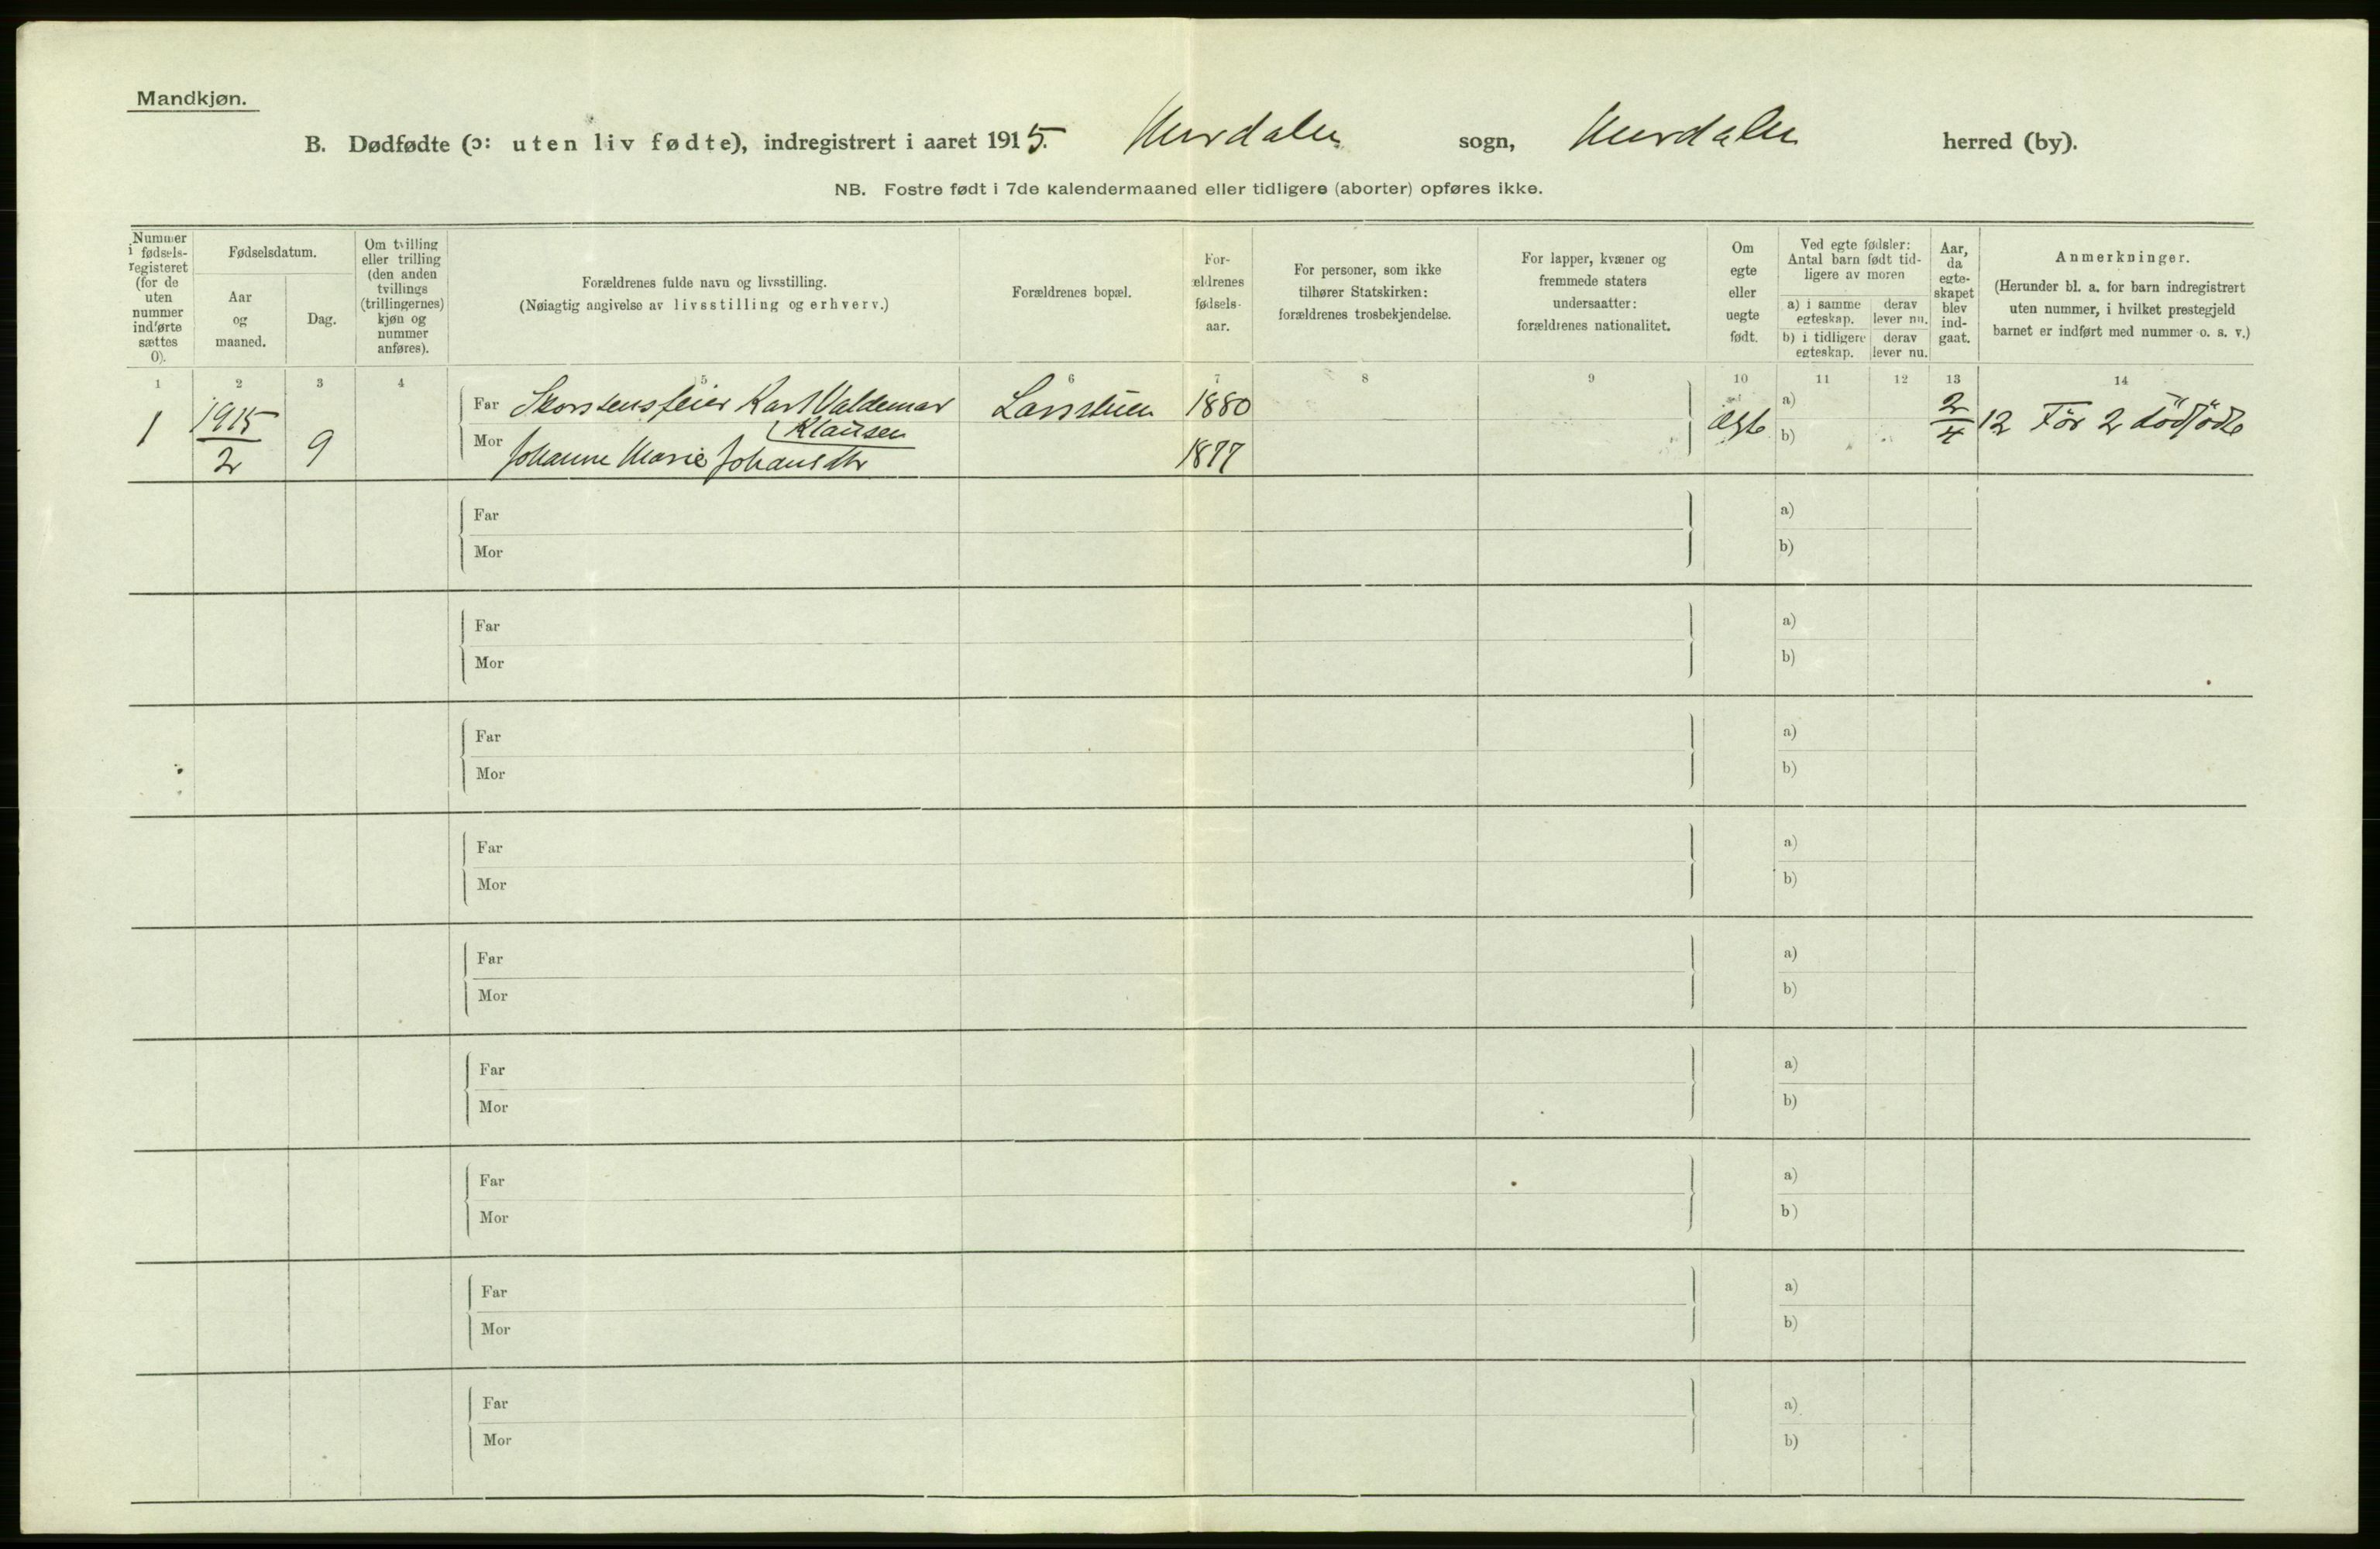 Mandkjøn.
B. Dødfødte (ɔ: uten liv fødte), indregistrert i aaret 1915. Hurdalen sogn, Hurdalen herred (by).
NB. Fostre født i 7de kalendermaaned eller tidligere (aborter) opføres ikke.
Nummer i fødsels-registeret (for de uten nummer indførte sættes 0).
Fødselsdatum.
Aar og maaned.
Dag.
Om tvilling eller trilling (den anden tvillings (trillingernes) kjøn og nummer anføres).
Forældrenes fulde navn og livsstilling.
(Nøiagtig angivelse av livsstilling og erhverv.)
Forældrenes bopæl.
For-ældrenes fødsels-aar.
For personer, som ikke tilhører Statskirken: forældrenes trosbekjendelse.
For lapper, kvæner og fremmede staters undersaatter: forældrenes nationalitet.
Om egte eller uegte født.
Ved egte fødsler: Antal barn født tid-ligere av moren
a) i samme egteskap.
derav lever nu.
b) i tidligere egteskap.
derav lever nu.
Aar, da egte-skapet blev ind-gaat.
Anmerkninger.
(Herunder bl. a. for barn indregistrert uten nummer, i hvilket prestegjeld barnet er indført med nummer o. s. v.)
1 2 3 4 5 6 7 8 9 10 11 12 13 14
1 1915/2 9 Far Skorstensfeier Karl Valdemar 1880 ægte a) 2/4 12 Før 2 dödfödte
Klausen
Mor Johanne Marie Johansdtr 1877 b)
Far a)
Mor b)
Far a)
Mor b)
Far a)
Mor b)
Far a)
Mor b)
Far a)
Mor b)
Far a)
Mor b)
Far a)
Mor b)
Far a)
Mor b)
Far a)
Mor b)